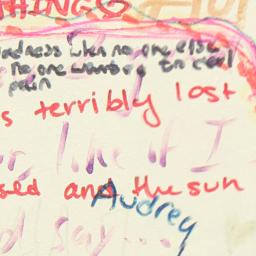 THINGS
madness when no one else
no one wants to feel
pain
s terribly lost
or, like if I
sed and the sun
Audrey
d say...